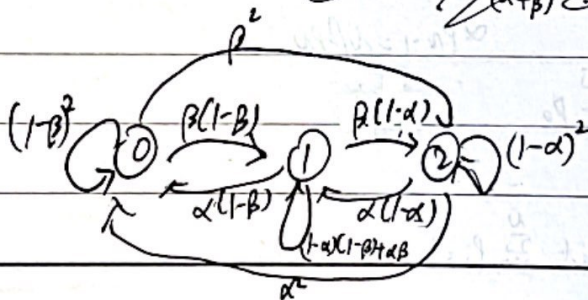 β²
(1-β)²
0
β(1-β)
1
β(1-α)
2
(1-α)²
α(1-β)
α(1-α)
(1-α)(1-β)+αβ
α²